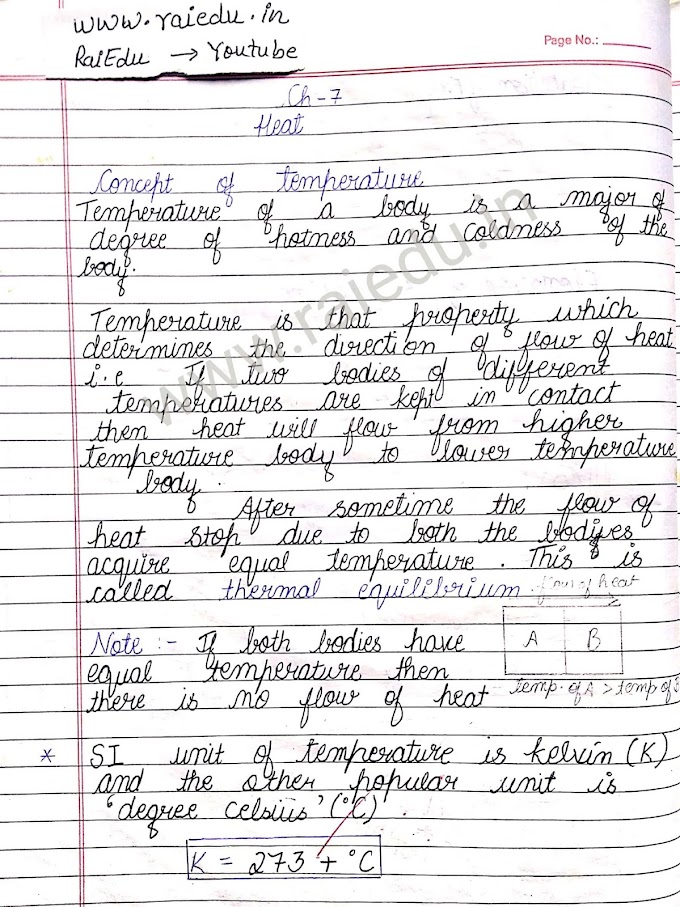 www.raiedu.in
RaiEdu → Youtube
Page No.:
Ch-7
Heat
Concept of temperature
Temperature of a body is a major of
degree of hotness and coldness of the
body.
Temperature is that property which
determines the direction of flow of heat
i.e If two bodies of different
temperatures are kept in contact
then heat will flow from higher
temperature body to lower temperature
body.
After sometime the flow of
heat stop due to both the bodiyes
acquire equal temperature. This is
called thermal equilibrium.
flow of heat
A B
temp. of A > temp of B
Note :- If both bodies have
equal temperature then
there is no flow of heat
* SI unit of temperature is kelvin (K)
and the other popular unit is
'degree celsius' (°C)
K = 273 + °C
www.raiedu.in